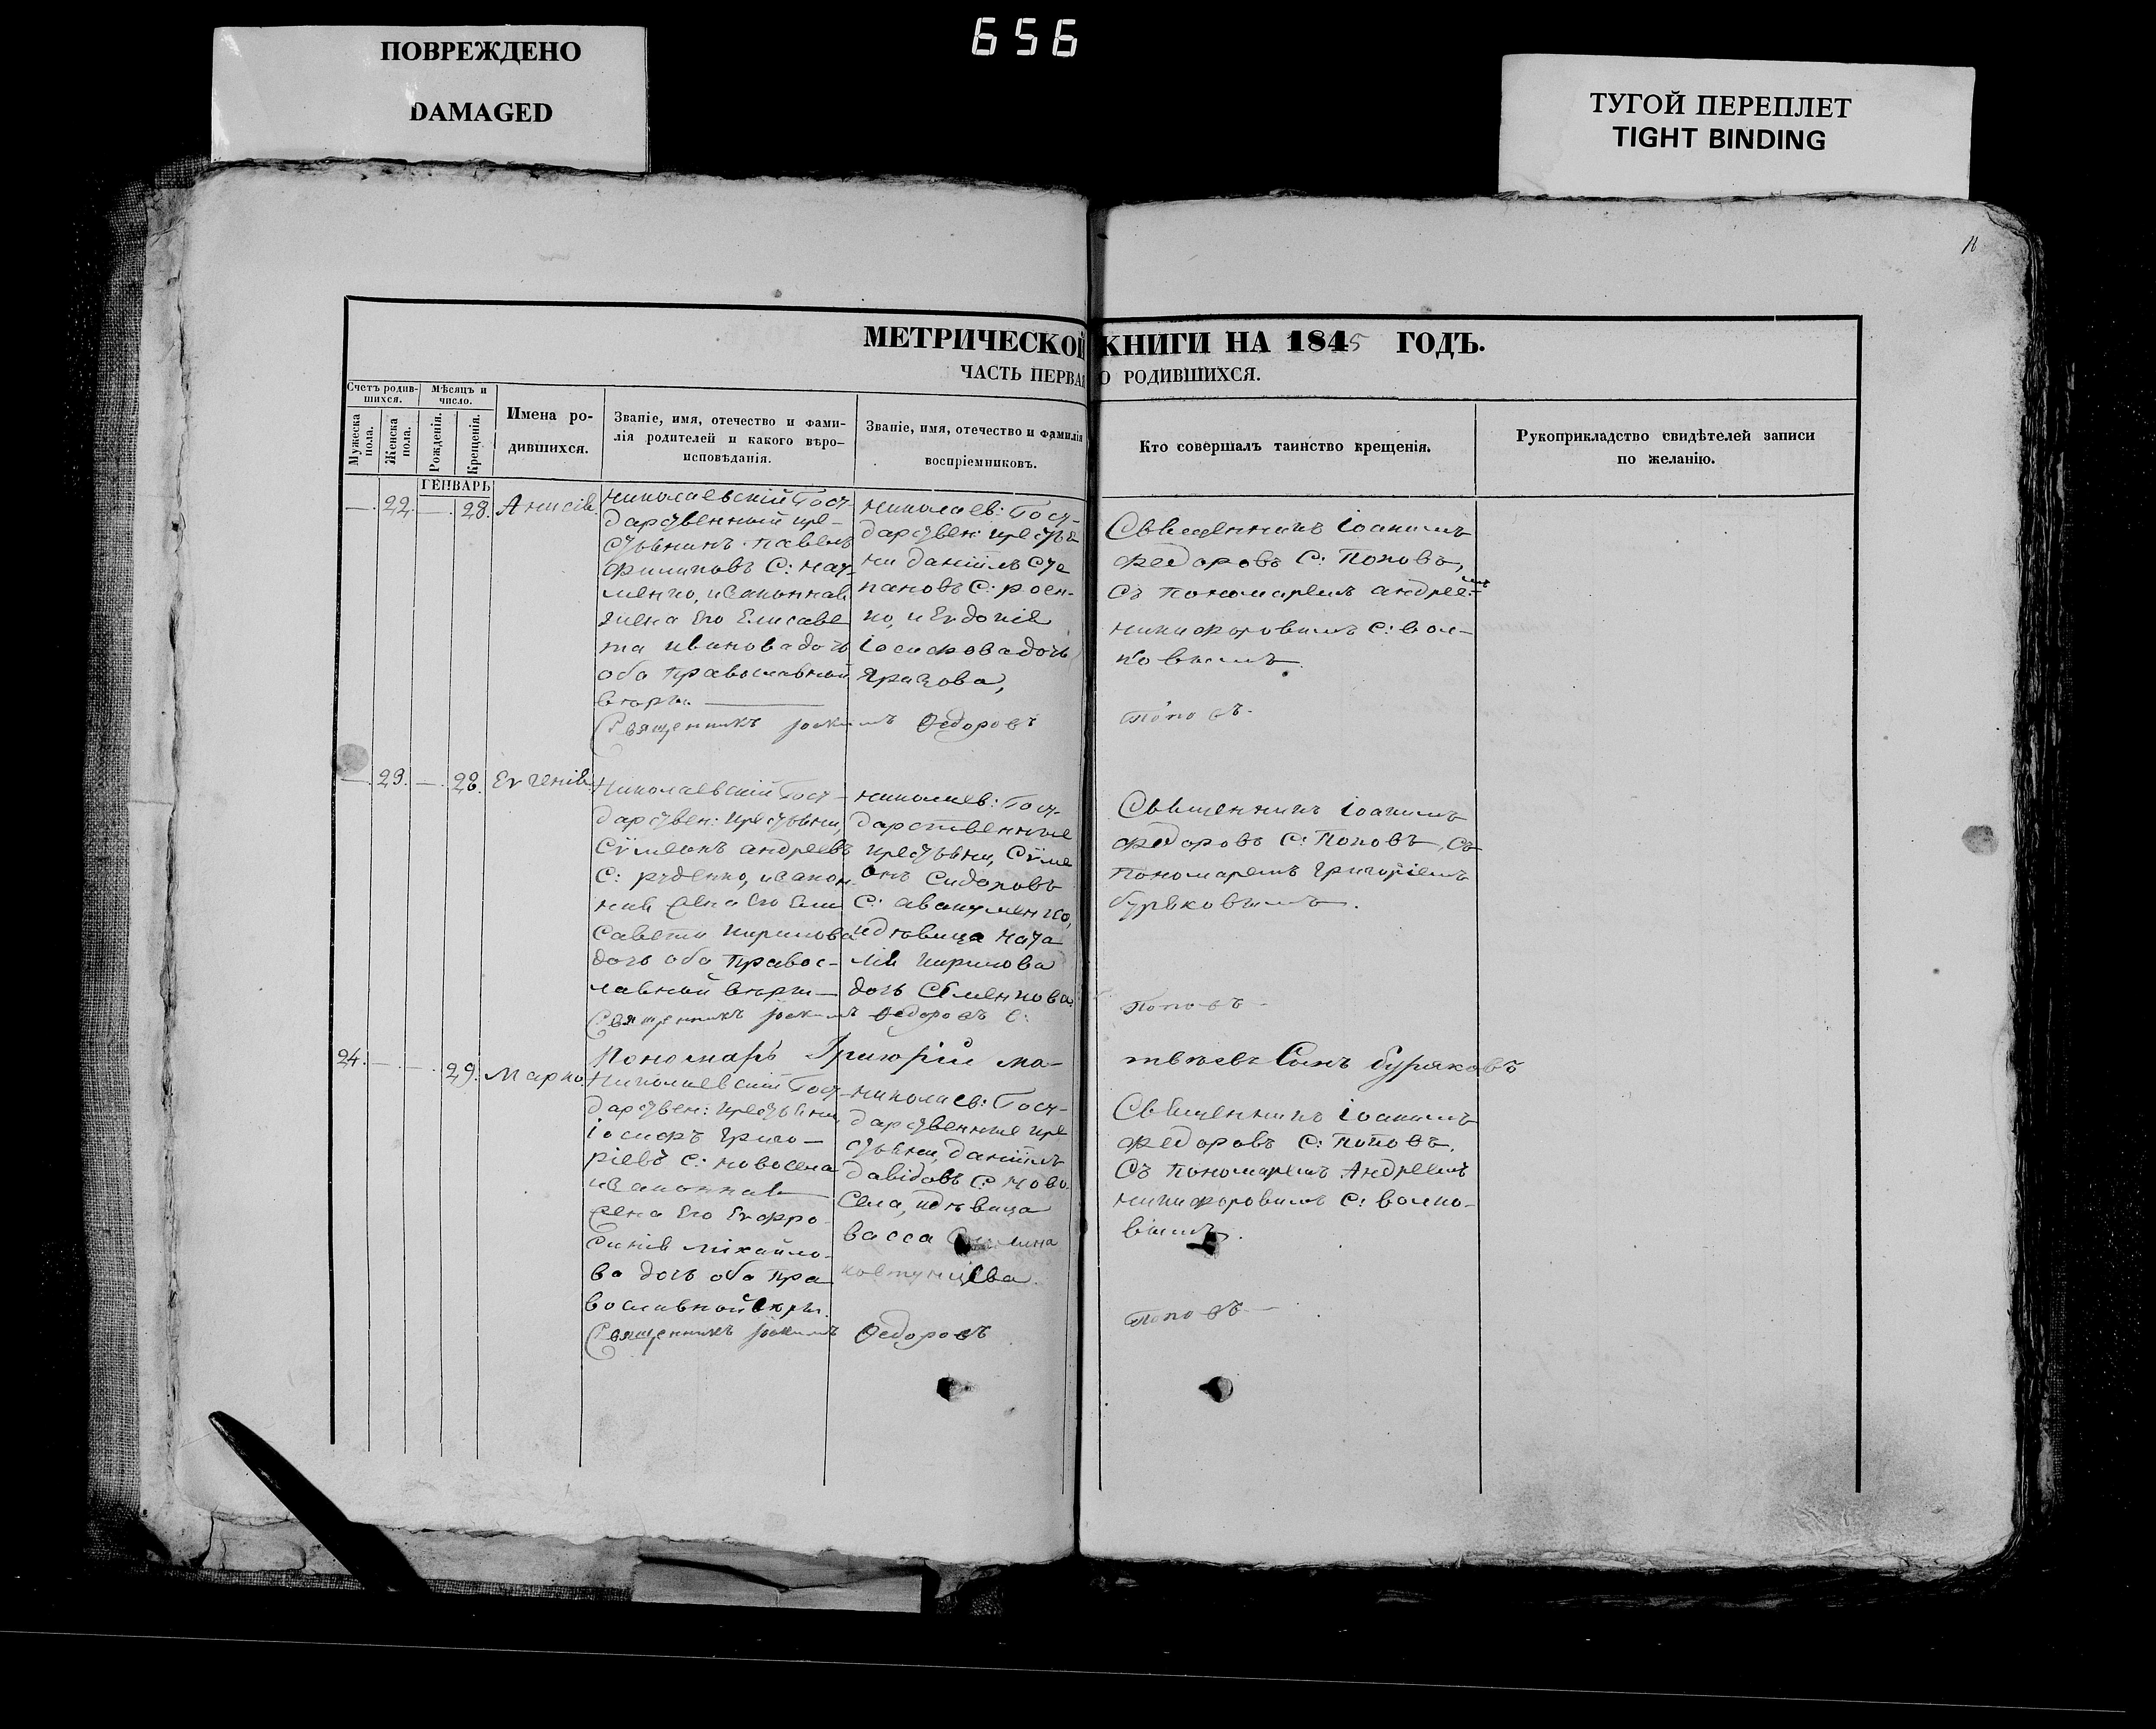 656
ПОВРЕЖДЕНО
DAMAGED
ТУГОЙ ПЕРЕПЛЕТ
TIGHT BINDING
МЕТРИЧЕСКОЙ КНИГИ НА 1845 ГОДЪ.
ЧАСТЬ ПЕРВАЯ О РОДИВШИХСЯ.
Счетъ родив-
шихся.
Мужеска
пола.
Женска
пола.
Мѣсяцъ и
число.
Рожденія.
Крещенія.
Имена ро-
дившихся.
Званіе, имя, отечество и фами-
лія родителей и какого вѣро-
исповѣданія.
Званіе, имя, отечество и фамилія
воспріемниковъ.
Кто совершалъ таинство крещенія.
Рукоприкладство свидѣтелей записи
по желанію.
ГЕНВАРЬ
22. 28.
Николаевскій Госу-
дарственный кре-
стьянинъ павелъ
филиповъ С: нау-
менко, изаконная
жена Его Елисаве
та иванова дочь
оба православной
вѣры.
николаев: Госу-
дарствен: крестья
ни даніилъ Сте
пановъ С:
но, и Евдокія
іосифова дочь
Священникъ іоакимъ
федоровъ С: Поповъ,
Съ пономаремъ андреемъ
никифоровымъ С: вол-
ковымъ.
Священникъ Іоакимъ Федоровъ
Поповъ
23. 28. Евгенія
Николаевскій Госу-
дарствен: крестьяни,
Сѵмеонъ андреевъ
С: руденко, изакон
ная жена Его Ели
савета кирилова
дочь оба Правос-
лавной вѣры
николаев: Госу-
дарственные
крестьяни, Сѵме
онъ Сидоровъ
С: авакуменко,
идѣвица ната
лія кирилова
дочь Семенкова
Священникъ іоакимъ
федоровъ С: Поповъ, Съ
пономаремъ григоріемъ
буряковымъ.
Священникъ Іоакимъ Федоровъ С:
Поповъ
Пономарь Григорій матвѣевъ Сынъ буряковъ
24. 29. Марко
Николаевскій Госу-
дарствен: крестьяни
іосифъ григо-
ріевъ С: новосела
изаконная
жена Его Евфро-
синія михайло-
ва дочь оба пра
вославной вѣры.
николаев: Госу-
дарственные кре
стьяни, даніилъ
давідовъ С: ново
села, идѣвица
васса
Священникъ іоакимъ
федоровъ С: поповъ,
Съ пономаремъ Андреемъ
никифоровымъ С: волко-
вымъ.
Священникъ Іоакимъ Федоровъ
Поповъ